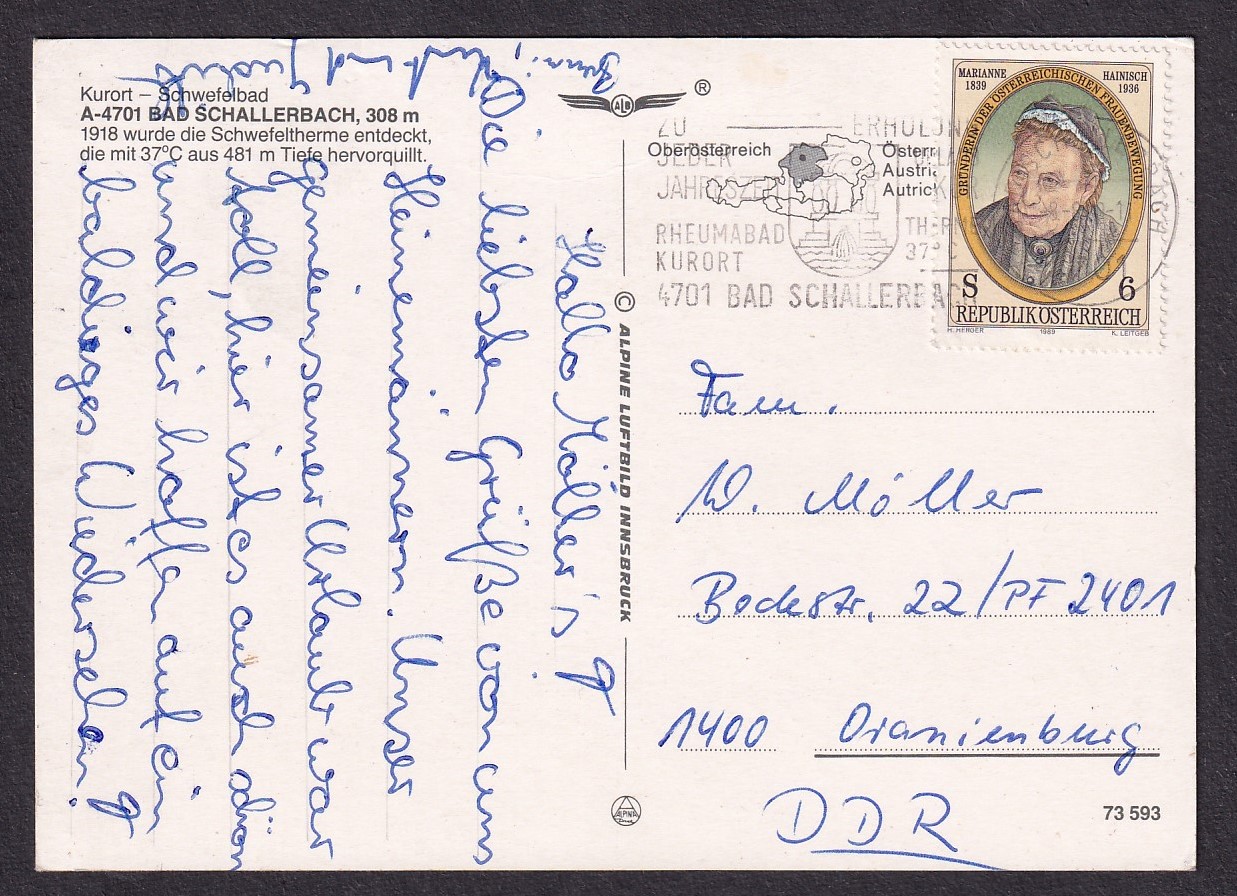 Kurort – Schwefelbad
A-4701 BAD SCHALLERBACH, 308 m
1918 wurde die Schwefeltherme entdeckt,
die mit 37°C aus 481 m Tiefe hervorquillt.
Hallo Möller's!
Die liebsten Grüße von uns
Heinemännern. Unser
gemeinsamer Urlaub war
toll, hier ist es auch schön
und wir hoffen auf ein
baldiges Wiedersehen!
und
© ALPINE LUFTBILD INNSBRUCK
ALPINA
ALB
®
Oberösterreich
Österr
Austri
Autric
ZU ERHOLUN
JEDER
JAHRESZE
RHEUMABAD
KURORT
THER
37°
4701 BAD SCHALLERBACH
MARIANNE HAINISCH
1839 1936
GRÜNDERIN DER ÖSTERREICHISCHEN FRAUENBEWEGUNG
S 6
REPUBLIK ÖSTERREICH
H. HERGER 1989 K. LEITGEB
Fam.
W. Möller
Bockstr. 22/PF 2401
1400 Oranienburg
DDR
73 593